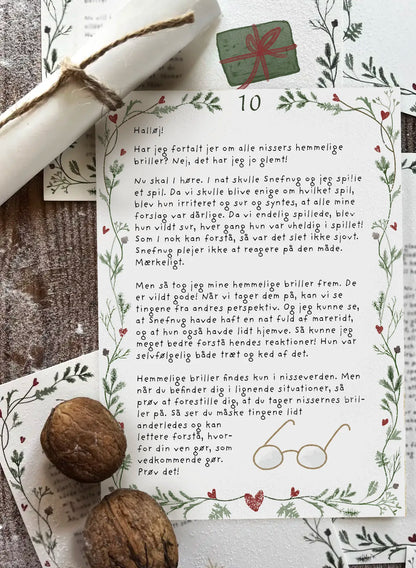 10
Halløj!
Har jeg fortalt jer om alle nissers hemmelige
briller? Nej, det har jeg jo glemt!
Nu skal I høre. I nat skulle Snefnug og jeg spille
et spil. Da vi skulle blive enige om hvilket spil,
blev hun irriteret og sur og syntes, at alle mine
forslag var dårlige. Da vi endelig spillede, blev
hun vildt sur, hver gang hun var uheldig i spillet!
Som I nok kan forstå, så var det slet ikke sjovt.
Snefnug plejer ikke at reagere på den måde.
Mærkeligt.
Men så tog jeg mine hemmelige briller frem. De
er vildt gode! Når vi tager dem på, kan vi se
tingene fra andres perspektiv. Og jeg kunne se,
at Snefnug havde haft en nat fuld af mareridt,
og at hun også havde lidt hjemve. Så kunne jeg
meget bedre forstå hendes reaktioner! Hun var
selvfølgelig både træt og ked af det.
Hemmelige briller findes kun i nisseverden. Men
når du befinder dig i lignende situationer, så
prøv at forestille dig, at du tager nissernes bril-
ler på. Så ser du måske tingene lidt
anderledes og kan
lettere forstå, hvor-
for din ven gør, som
vedkommende gør.
Prøv det!